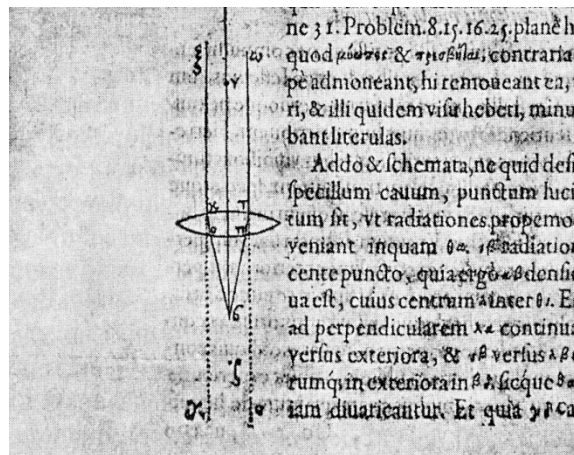 ne 31. Problem. 8. 15. 16. 25. planè h
quod μύωπες & πρεσβύται, contraria
pe admoneant, hi remoueant ea,
ri, & illi quidem visu hebeti, minu
bant literulas.
Addo & schemata, ne quid desi
specillum cauum, punctum luci
tum sit, vt radiationes propemo
veniant inquam radiation
cente puncto, quia ergo αβ densi
ua est, cuius centrum λ inter θι. E
ad perpendicularem continua
versus exteriora, & versus
rumq; in exteriora in sicque
iam diuaricantur. Et quia ca
ξ
ω
υ
χ
τ
ο
π
ς
ζ